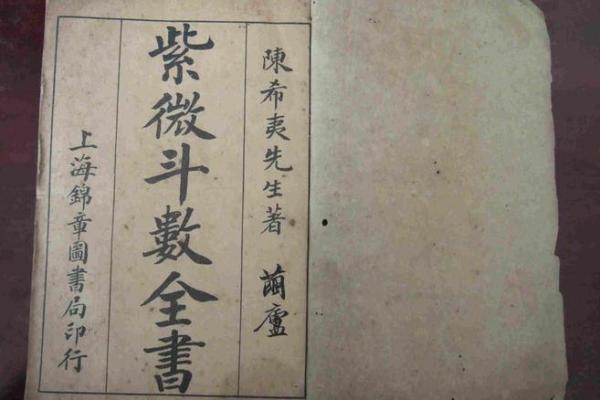 陳希夷先生著 蘭廬
紫微斗數全書
上海錦章圖書局印行